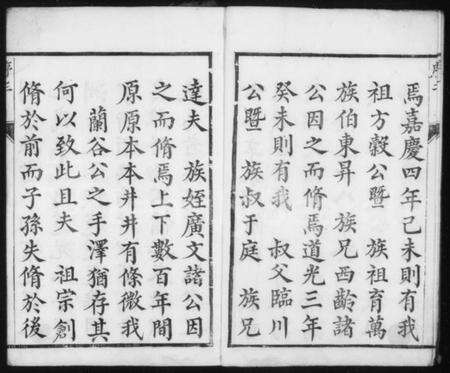 焉嘉慶四年己未則有我
祖方轂公暨　族祖育萬
族伯東昇　族兄西齡諸
公因之而脩焉道光三年
癸未則有我　叔父臨川
公暨　族叔于庭　族兄
達夫　族姪廣文諸公因
之而脩焉上下數百年間
原原本本井井有條微我
蘭谷公之手澤猶存其
何以致此且夫　祖宗創
脩於前而子孫失脩於後